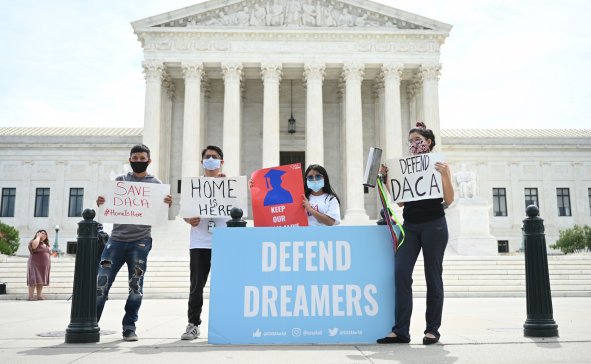 SAVE
DACA
#HomeIsHere
HOME
IS
HERE
KEEP
OUR
DEFEND
DACA
DEFEND
DREAMERS